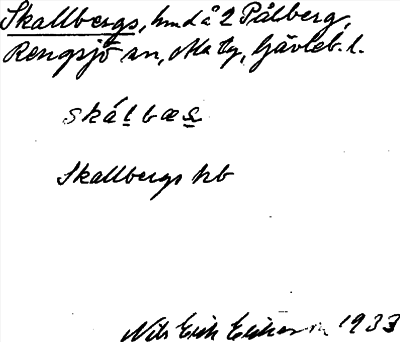 Skallbergs, hmd å 2 Pålberg,
Rengsjö sn, Ala tg, Gävleb. l.
skálbæs
Skallbergs hb
Nils Erik Eriksson 1933